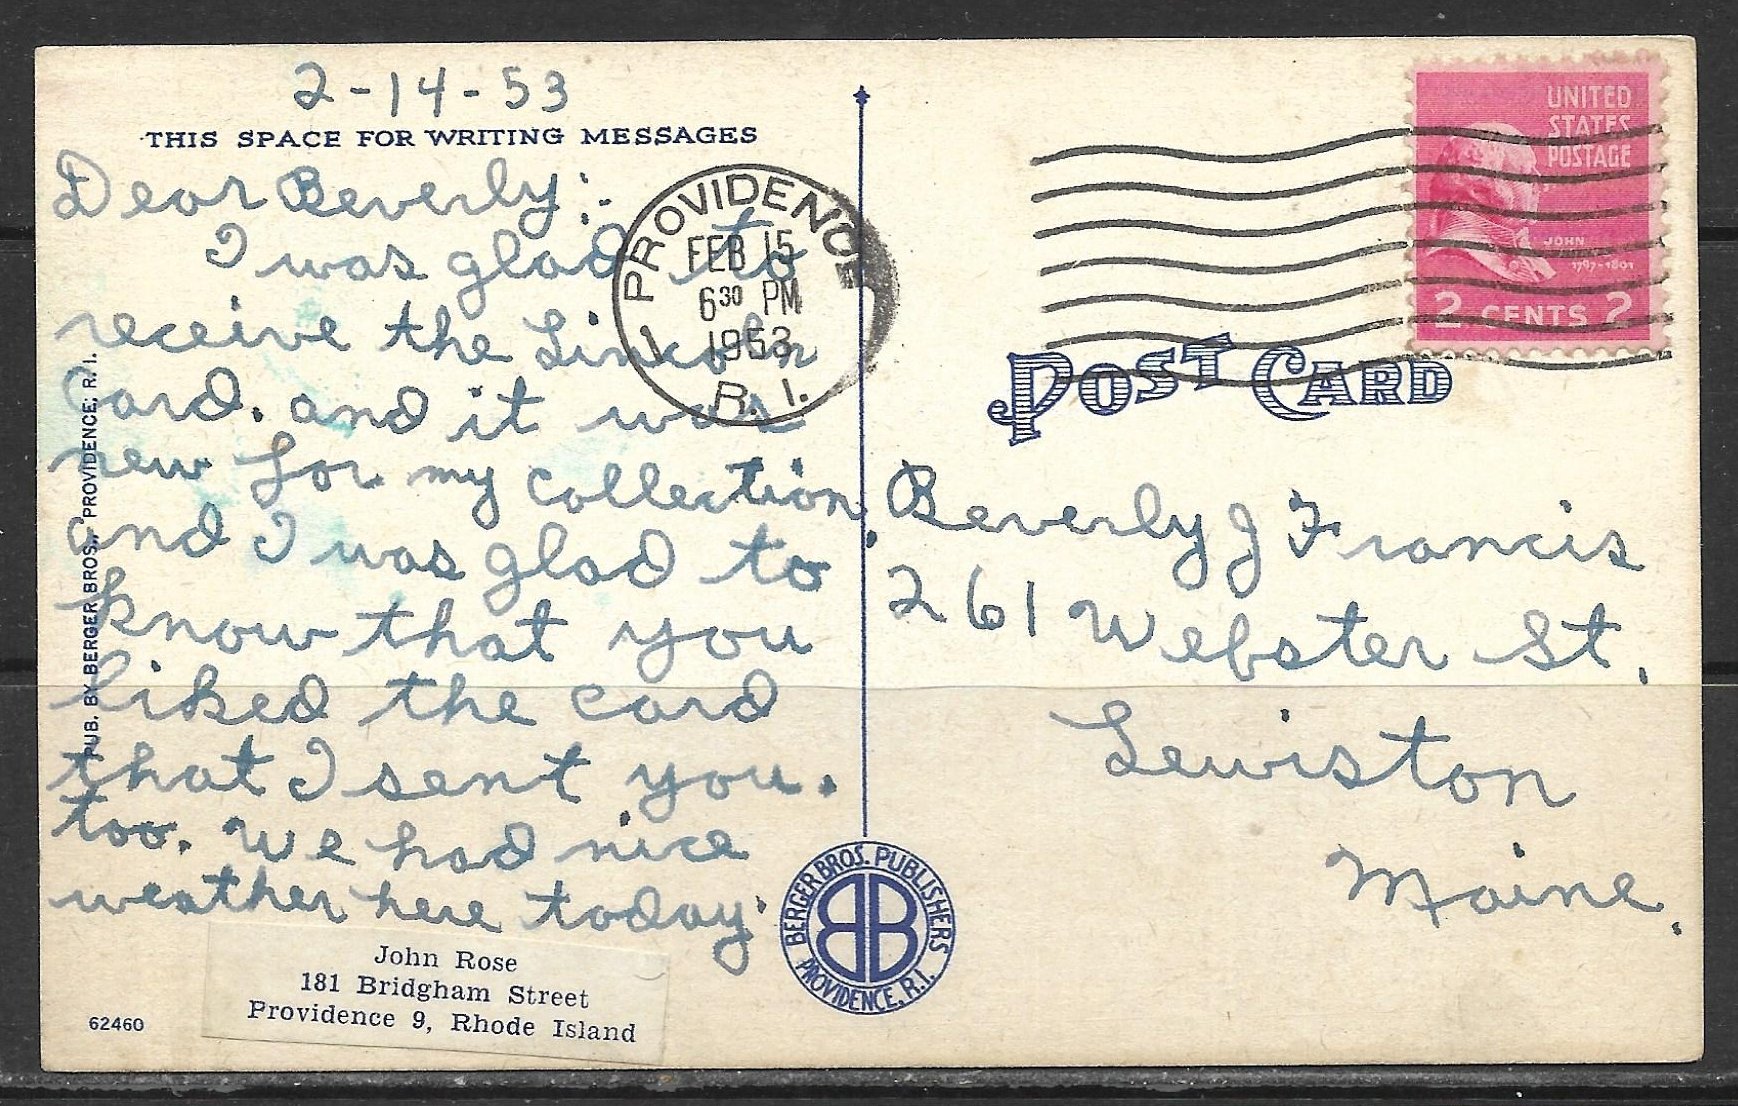 2-14-53
THIS SPACE FOR WRITING MESSAGES
Dear Beverly:-
I was glad to
receive the Lincoln
Card. and it was
new for my collection.
and I was glad to
know that you
liked the card
that I sent you.
too. We had nice
weather here today.
John Rose
181 Bridgham Street
Providence 9, Rhode Island
62460
PUB. BY BERGER BROS., PROVIDENCE, R. I.
PROVIDENCE
FEB 15
6 30 PM
1953
R. I.
UNITED
STATES
POSTAGE
JOHN
1797-1801
2 CENTS 2
POST CARD
Beverly J Francis
261 Webster St.
Lewiston
Maine.
BERGER BROS. PUBLISHERS
BB
PROVIDENCE, R.I.